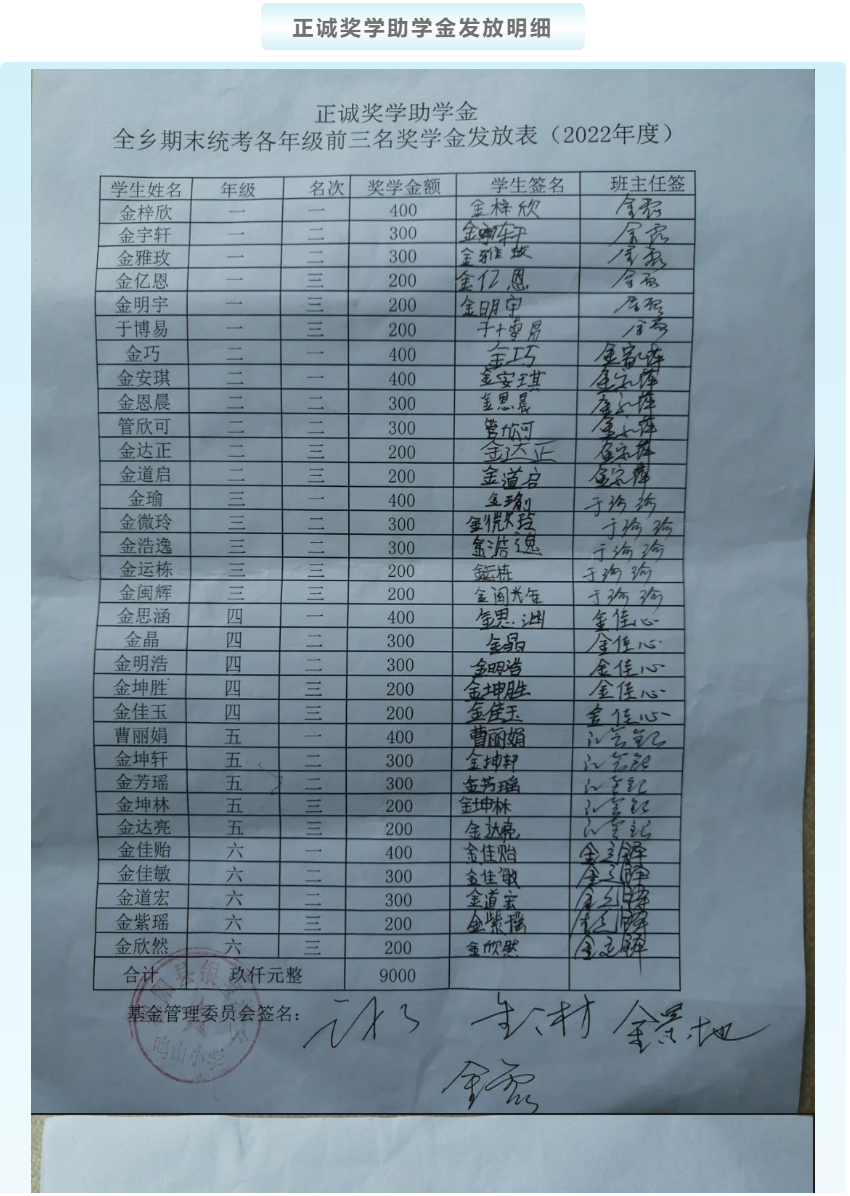 正诚奖学助学金发放明细
正诚奖学助学金
全乡期末统考各年级前三名奖学金发放表（2022年度）
学生姓名 年级 名次 奖学金额 学生签名 班主任签
金梓欣 一 一 400 金梓欣 金磊
金宇轩 一 二 300 金宇轩 金磊
金雅玫 一 二 300 金雅玫 金磊
金亿恩 一 三 200 金亿恩 金磊
金明宇 一 三 200 金明宇 金磊
于博易 一 三 200 于博易 金磊
金巧 二 一 400 金巧
金安琪 二 一 400 金安琪
金恩晨 二 二 300 金恩晨
管欣可 二 二 300 管欣可
金达正 二 三 200 金达正
金道启 二 三 200 金道启
金瑜 三 一 400 金瑜 于瑜瑜
金微玲 三 二 300 金微玲 于瑜瑜
金浩逸 三 二 300 金浩逸 于瑜瑜
金运栋 三 三 200 金运栋 于瑜瑜
金闽辉 三 三 200 金闽辉 于瑜瑜
金思涵 四 一 400 金思涵 金佳心
金晶 四 二 300 金晶 金佳心
金明浩 四 二 300 金明浩 金佳心
金坤胜 四 三 200 金坤胜 金佳心
金佳玉 四 三 200 金佳玉 金佳心
曹丽娟 五 一 400 曹丽娟
金坤轩 五 二 300 金坤轩
金芳瑶 五 二 300 金芳瑶
金坤林 五 三 200 金坤林
金达亮 五 三 200 金达亮
金佳贻 六 一 400 金佳贻
金佳敏 六 二 300 金佳敏
金道宏 六 二 300 金道宏
金紫瑶 六 三 200 金紫瑶
金欣然 六 三 200 金欣然
合计 玖仟元整 9000
基金管理委员会签名：
金磊
鸣山小学